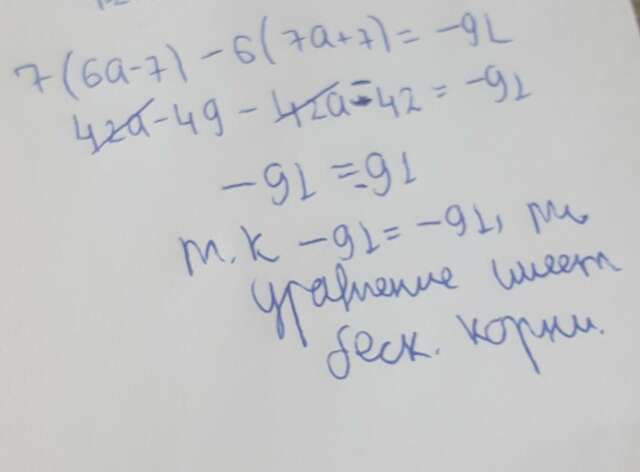 7(6a-7)-6(7a+7)=-91
42a-49-42a-42=-91
-91=-91
т.к -91=-91, то
уравнение имеет
беск. корни.